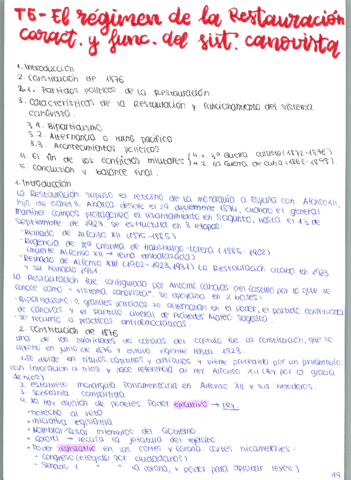 T5- El régimen de la Restauración
caract. y func. del sist. canovista
1. Introducción
2. Constitución de 1876
2.1. Partidos políticos de la Restauración
3. Características de la Restauración y funcionamiento del sistema
canovista.
3.1. Bipartidismo
3.2. Alternancia o turno pacífico
3.3. Acontecimientos políticos
4. El fin de los conflictos militares (4.1. 3ª guerra carlista (1872-1876)
4.2. La guerra de Cuba (1868-1898).
5. Conclusión y balance final.
1. Introducción
La Restauración supuso el retorno de la monarquía a España con Alfonso XII,
hijo de Isabel II. Abarca desde el 29 diciembre 1874, cuando el general
Martínez Campos protagonizó el levantamiento en Sagunto, hasta el 13 de
septiembre de 1923. Se estructura en 3 etapas:
-Reinado de Alfonso XII (1875-1885)
-Regencia de Mª Cristina de Habsburgo-Lorena (1885-1902)
(muerte Alfonso XII → reina embarazada)
-Reinado de Alfonso XIII (1902-1923,1931) La Restauración acabó en 1923
y su reinado 1931.
La Restauración fue configurada por Antonio Cánovas del Castillo por lo que se
conoce como "sistema canovista". Se apoyaba en 2 bases:
-Bipartidismo: 2 grandes partidos se alternaban en el poder, el partido conservador
de Cánovas y el partido liberal de Práxedes Mateo Sagasta
-Se recurre a prácticas antidemocráticas.
2. Constitución de 1876
Una de las prioridades de Cánovas del Castillo fue la Constitución, que se
aprobó en junio de 1876 y estuvo vigente hasta 1923.
-Se divide en títulos, capítulos y artículos y viene precedido por un preámbulo
con invocación a Dios y hace referencia al rey Alfonso XII (Rey por la gracia
de Dios)
2. Establece monarquía parlamentaria en Alfonso XII y sus herederos.
3. Soberanía compartida
4. No hay división de poderes Poder ejecutivo → rey
•derecho al veto
•iniciativa legislativa
•Nombrar/cesar miembros del gobierno
•Corona → recaía la jefatura del ejército
•Poder legislativo en las cortes y corona. Cortes bicamerales:
-Congreso (elegido por ciudadanos)
-Senado ( " la corona, + poder para aprobar leyes)